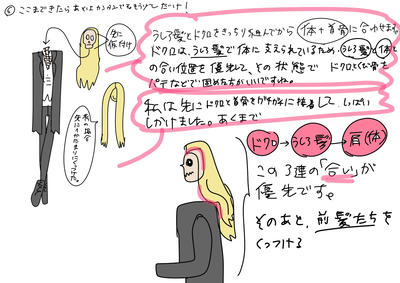 © ここまできたらあとはよかったんですもうすでだけ!
先に仮付け
私の場合
先にかたまりにくっつけた。
うしろ髪とドクロをきっちり組んでから 体+首骨 に合わせます。
ドクロは、うしろ髪で体に支えられているため、うしろ髪と体と
の合い位置を優先して、その状態で ドクロと首骨を
パテなどで固めた方がいいですね。
私は先にドクロと首骨をガチガチに接着して、しっぱい
しかけました。あくまで
ドクロ → うしろ髪 → 肩(体)
この3連の「合い」が
優先です。
そのあと、前髪たちを
くっつける